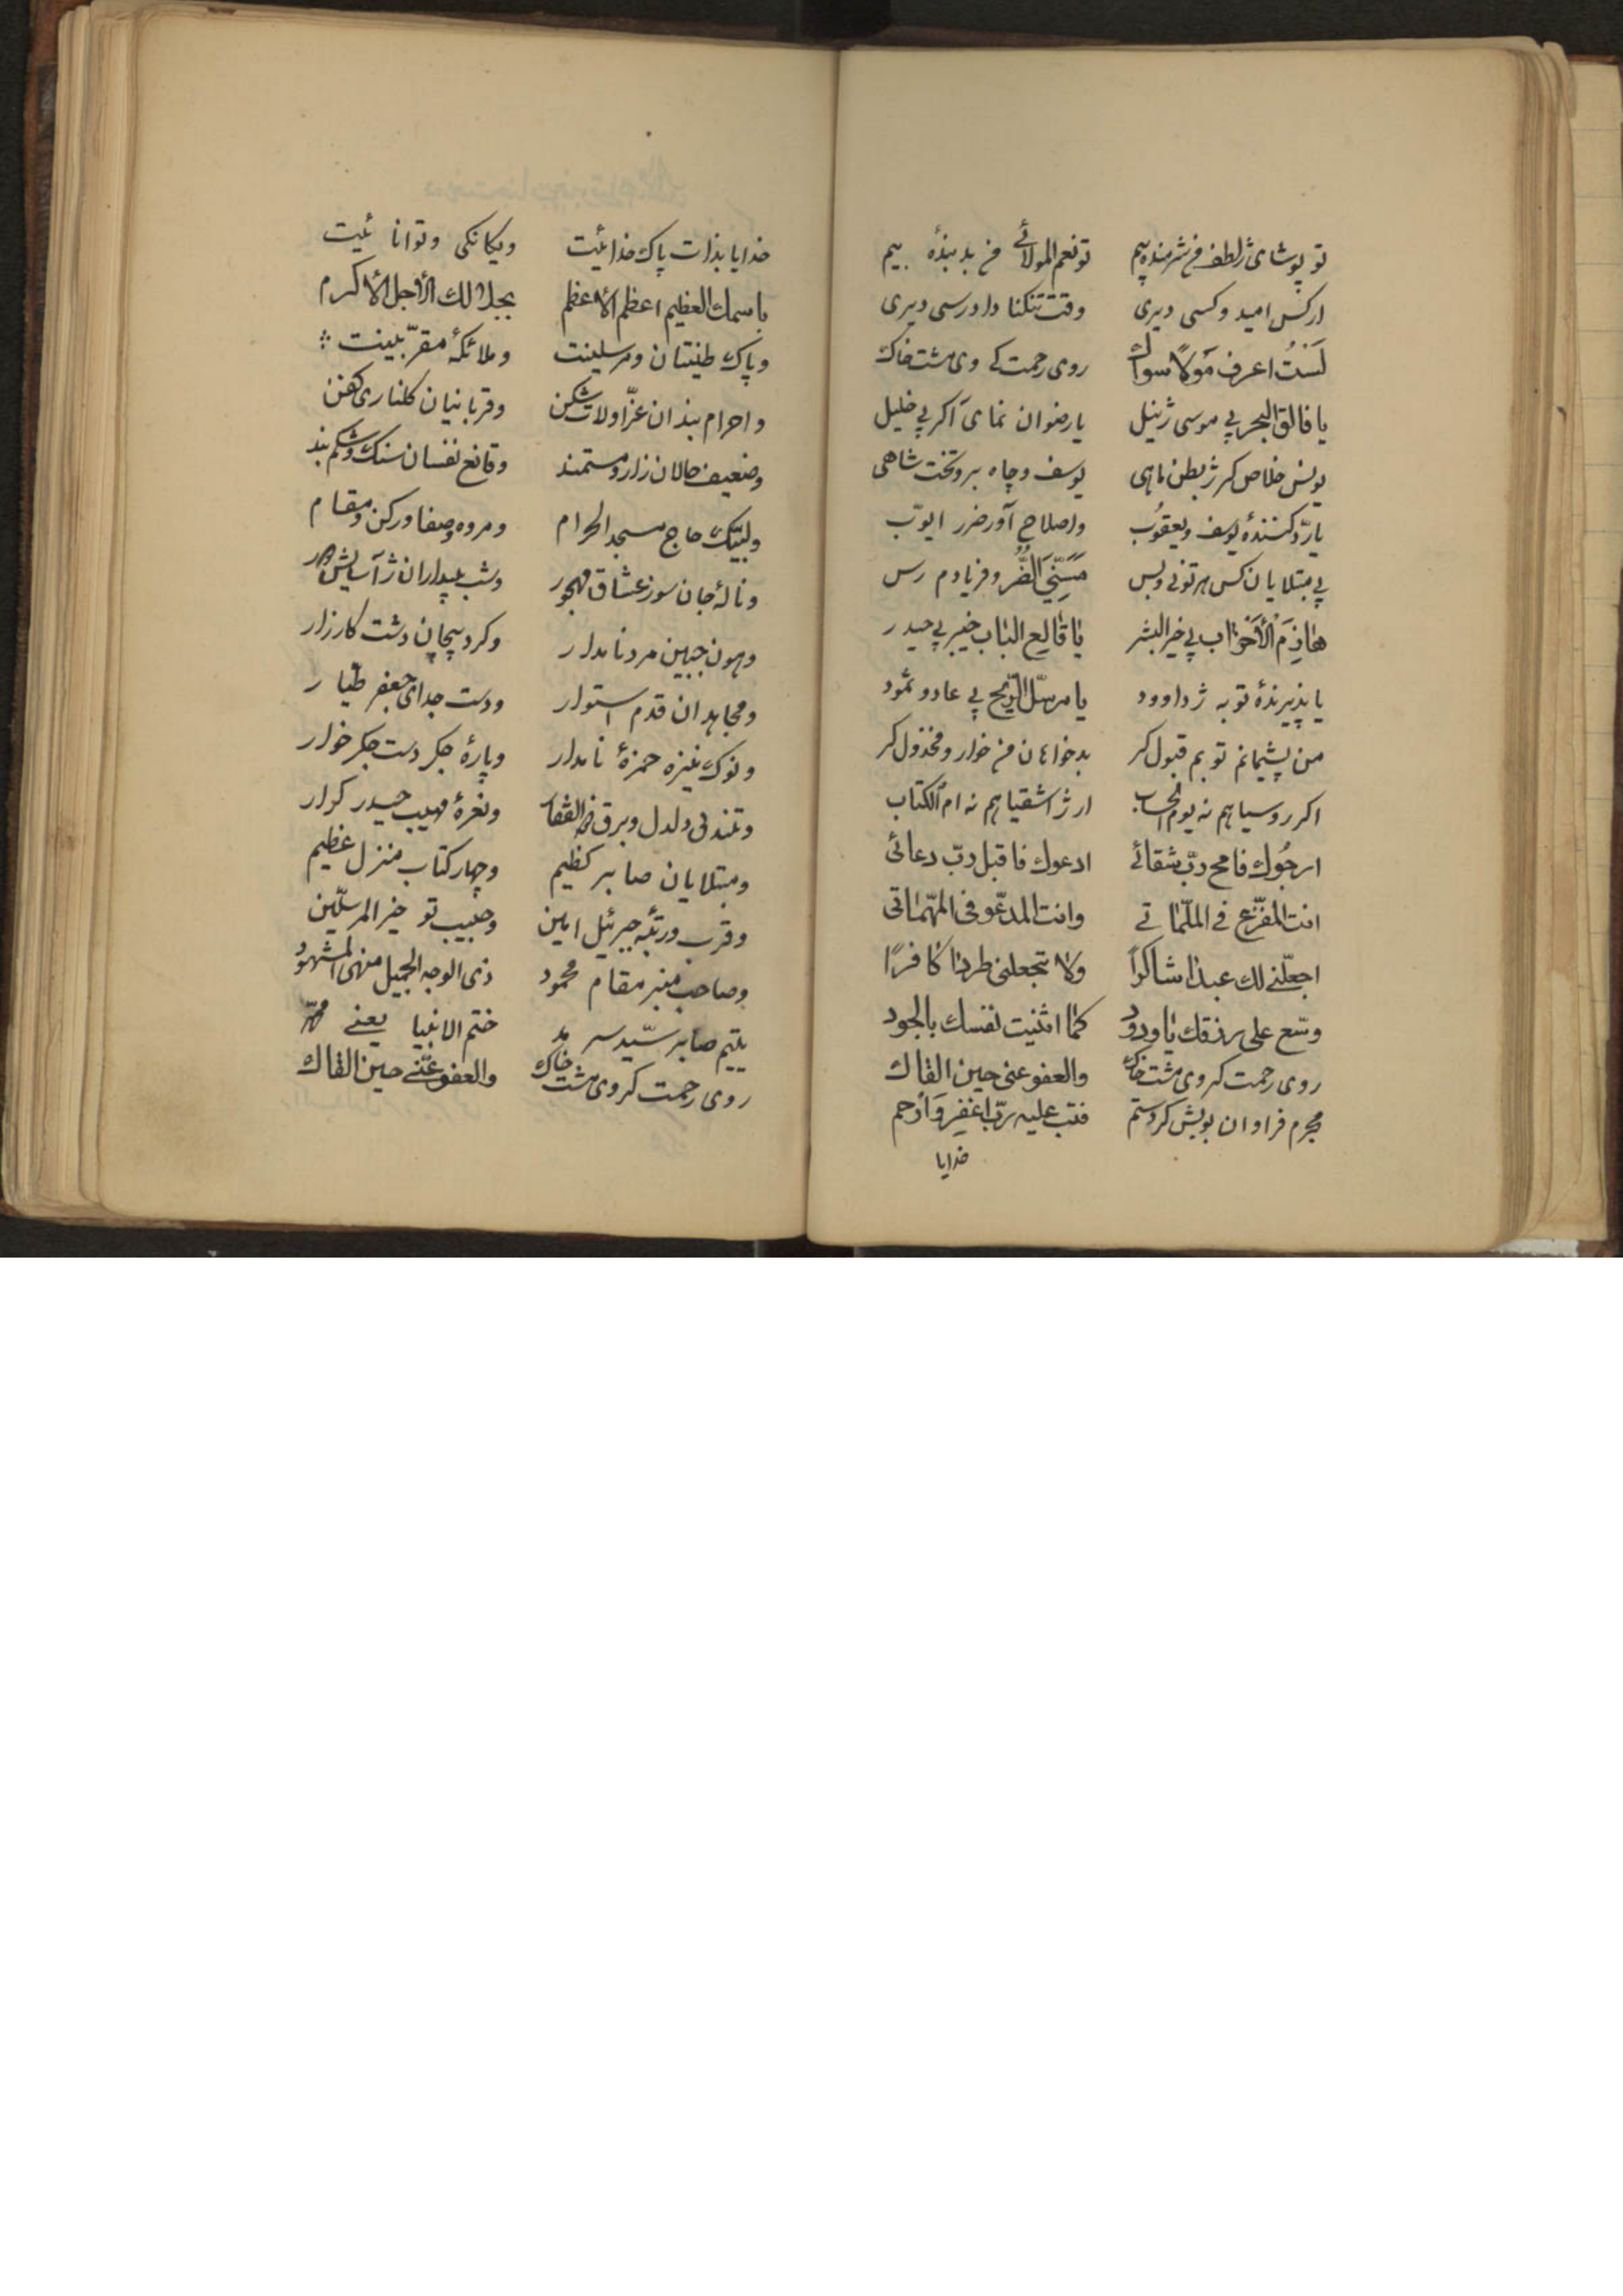 تو پوشای ژلطف من شرمنده بیم تو نعم المولائی من بد بنده بیم
ارکس امید وکسی دیری وقت تنکنا دادرسی دیری
لَسْتُ اعرف مَولاً سواك روی رحمت کر وی مشت خاك
یا فالق البحر پی موسی ژنیل یا رضوان نمای آکر پی خلیل
یونس خلاص کر ژ بطن ماهی یوسف و چاه بر و تخت شاهی
یا ردّ کنندهٔ یوسف و یعقوُب و اصلاح آور ضرر ایوّب
پی مبتلایان کس هر تونی و بس مَسَّنِیَ الضُّر و فریادم رس
هاذِمَ الْأَحْزاب پی خیر البشر یا قالع الباب خیبر پی حیدر
یا پذیرندهٔ توبه ژ داوود یا مرسل الرّیح پی عاد و ثمود
من پشیمانم توبم قبول کر بدخواهان من خوار و مخذول کر
اکر روسیاهم نه یوم الحساب ار ژ اشقیاهم نه ام الکتاب
ارجُوك فامح ربّ شقائی ادعوك فاقبل ربّ دعائی
انت المفزّع فی الملّماتی وانت المدعّو فی المهّماتی
اجعلنی لك عبدا شاکراً ولا تجعلنی طردا کافرًا
وسّع علی رزقك یا ودوُد کما اثنیت نفسك بالجود
روی رحمت کر وی مشت خاك والعفو عنی حین القاك
مجرم فراوان بویش کردستم فتب علیه ربّ اغفِر وَارْحم
خدایا
خدایا بذات پاك خدائیت ویکانکی و توانائیت
باسمك العظیم اعظم الأعظم بجلالك الأجل الأکرم
و پاك طینتان و مرسلینت و ملائکهٔ مقرّبینت
و احرام بندان عزّا ولات شکن و قربانیان کلناری کفن
وضعیف حالان زار و مستمند و قانع نفسان سنك و شکم بند
و لبّیك حاج مسجد الحرام و مروه وصفا و رکن و مقام
و نالهٔ جان سوز عشاق مهجور و شب بیداران ژ آسایش دور
و هون جبین مرد نامدار و کرد پیچان دشت کارزار
و مجاهدان قدم استوار و دست جدای جعفر طیار
و نوك نیزه حمزهٔ نامدار و پارهٔ جکر دست جکر خوار
و تندی دلدل و برق ذوالفقار و نعرهٔ مهیب حیدر کرار
و مبتلایان صابر کظیم و چهار کتاب منزل عظیم
و قرب و رتبٔه جبرئیل امین و حبیب تو خیر المرسلین
و صاحب منبر مقام محمود ذی الوجه الجمیل منهی المشهود
یتیم صابر سیّد سرمد ختم الانبیا یعنی محمّد
روی رحمت کر وی مشت خاك والعفو عنّی حین القاك